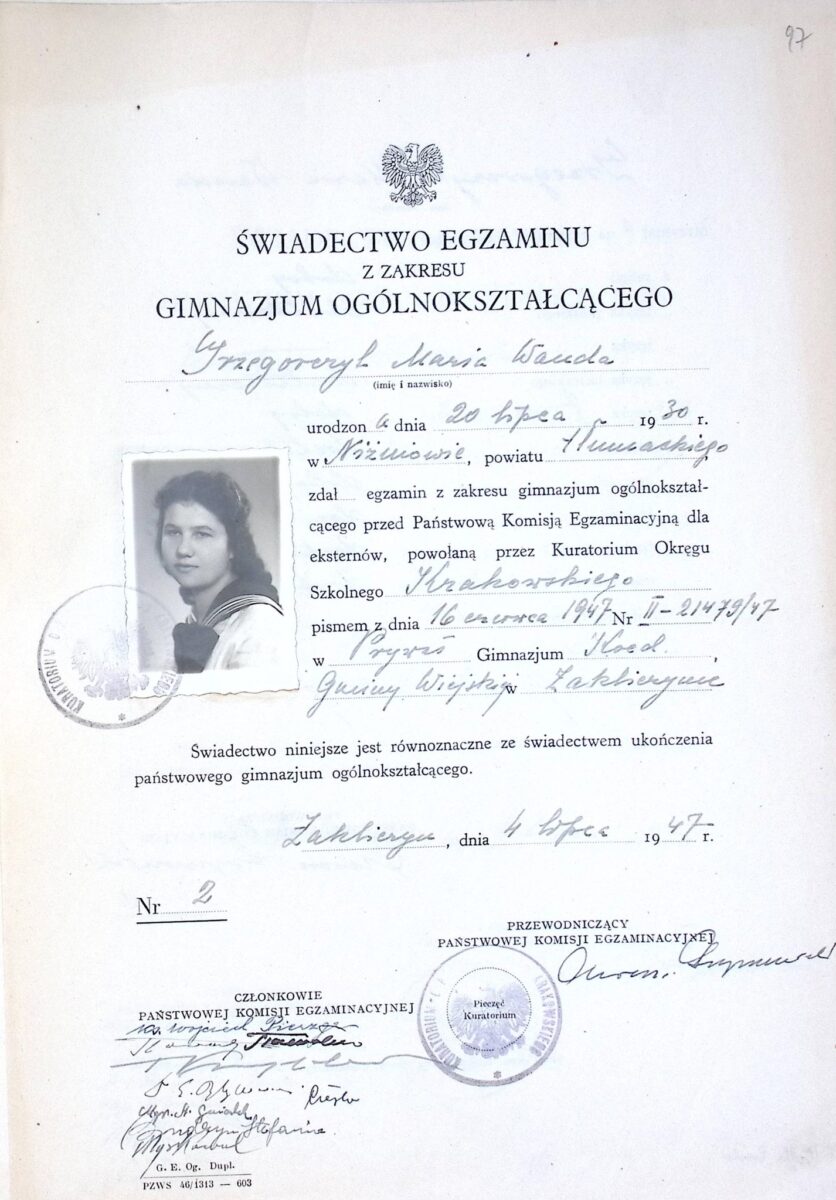 97
ŚWIADECTWO EGZAMINU
Z ZAKRESU
GIMNAZJUM OGÓLNOKSZTAŁCĄCEGO
Grzegorczyk Maria Wanda
(imię i nazwisko)
urodzona dnia 20 lipca 1930 r.
w Niżniowie, powiatu tłumackiego
zdał egzamin z zakresu gimnazjum ogólnokształ-
cącego przed Państwową Komisją Egzaminacyjną dla
eksternów, powołaną przez Kuratorium Okręgu
Szkolnego Krakowskiego
pismem z dnia 16 czerwca 1947 Nr II-21479/47
w Pryw. Gimnazjum Koed.,
Gminy Wiejskiej w Zakliczynie
Świadectwo niniejsze jest równoznaczne ze świadectwem ukończenia
państwowego gimnazjum ogólnokształcącego.
Zakliczyn, dnia 4 lipca 1947 r.
Nr 2
PRZEWODNICZĄCY
PAŃSTWOWEJ KOMISJI EGZAMINACYJNEJ
CZŁONKOWIE
PAŃSTWOWEJ KOMISJI EGZAMINACYJNEJ
Pieczęć
Kuratorium
KURATORIUM KRAKOWSKIEGO
ks. Wojciech
Stefania
G. E. Og. Dupl.
PZWS 46/1313 — 603